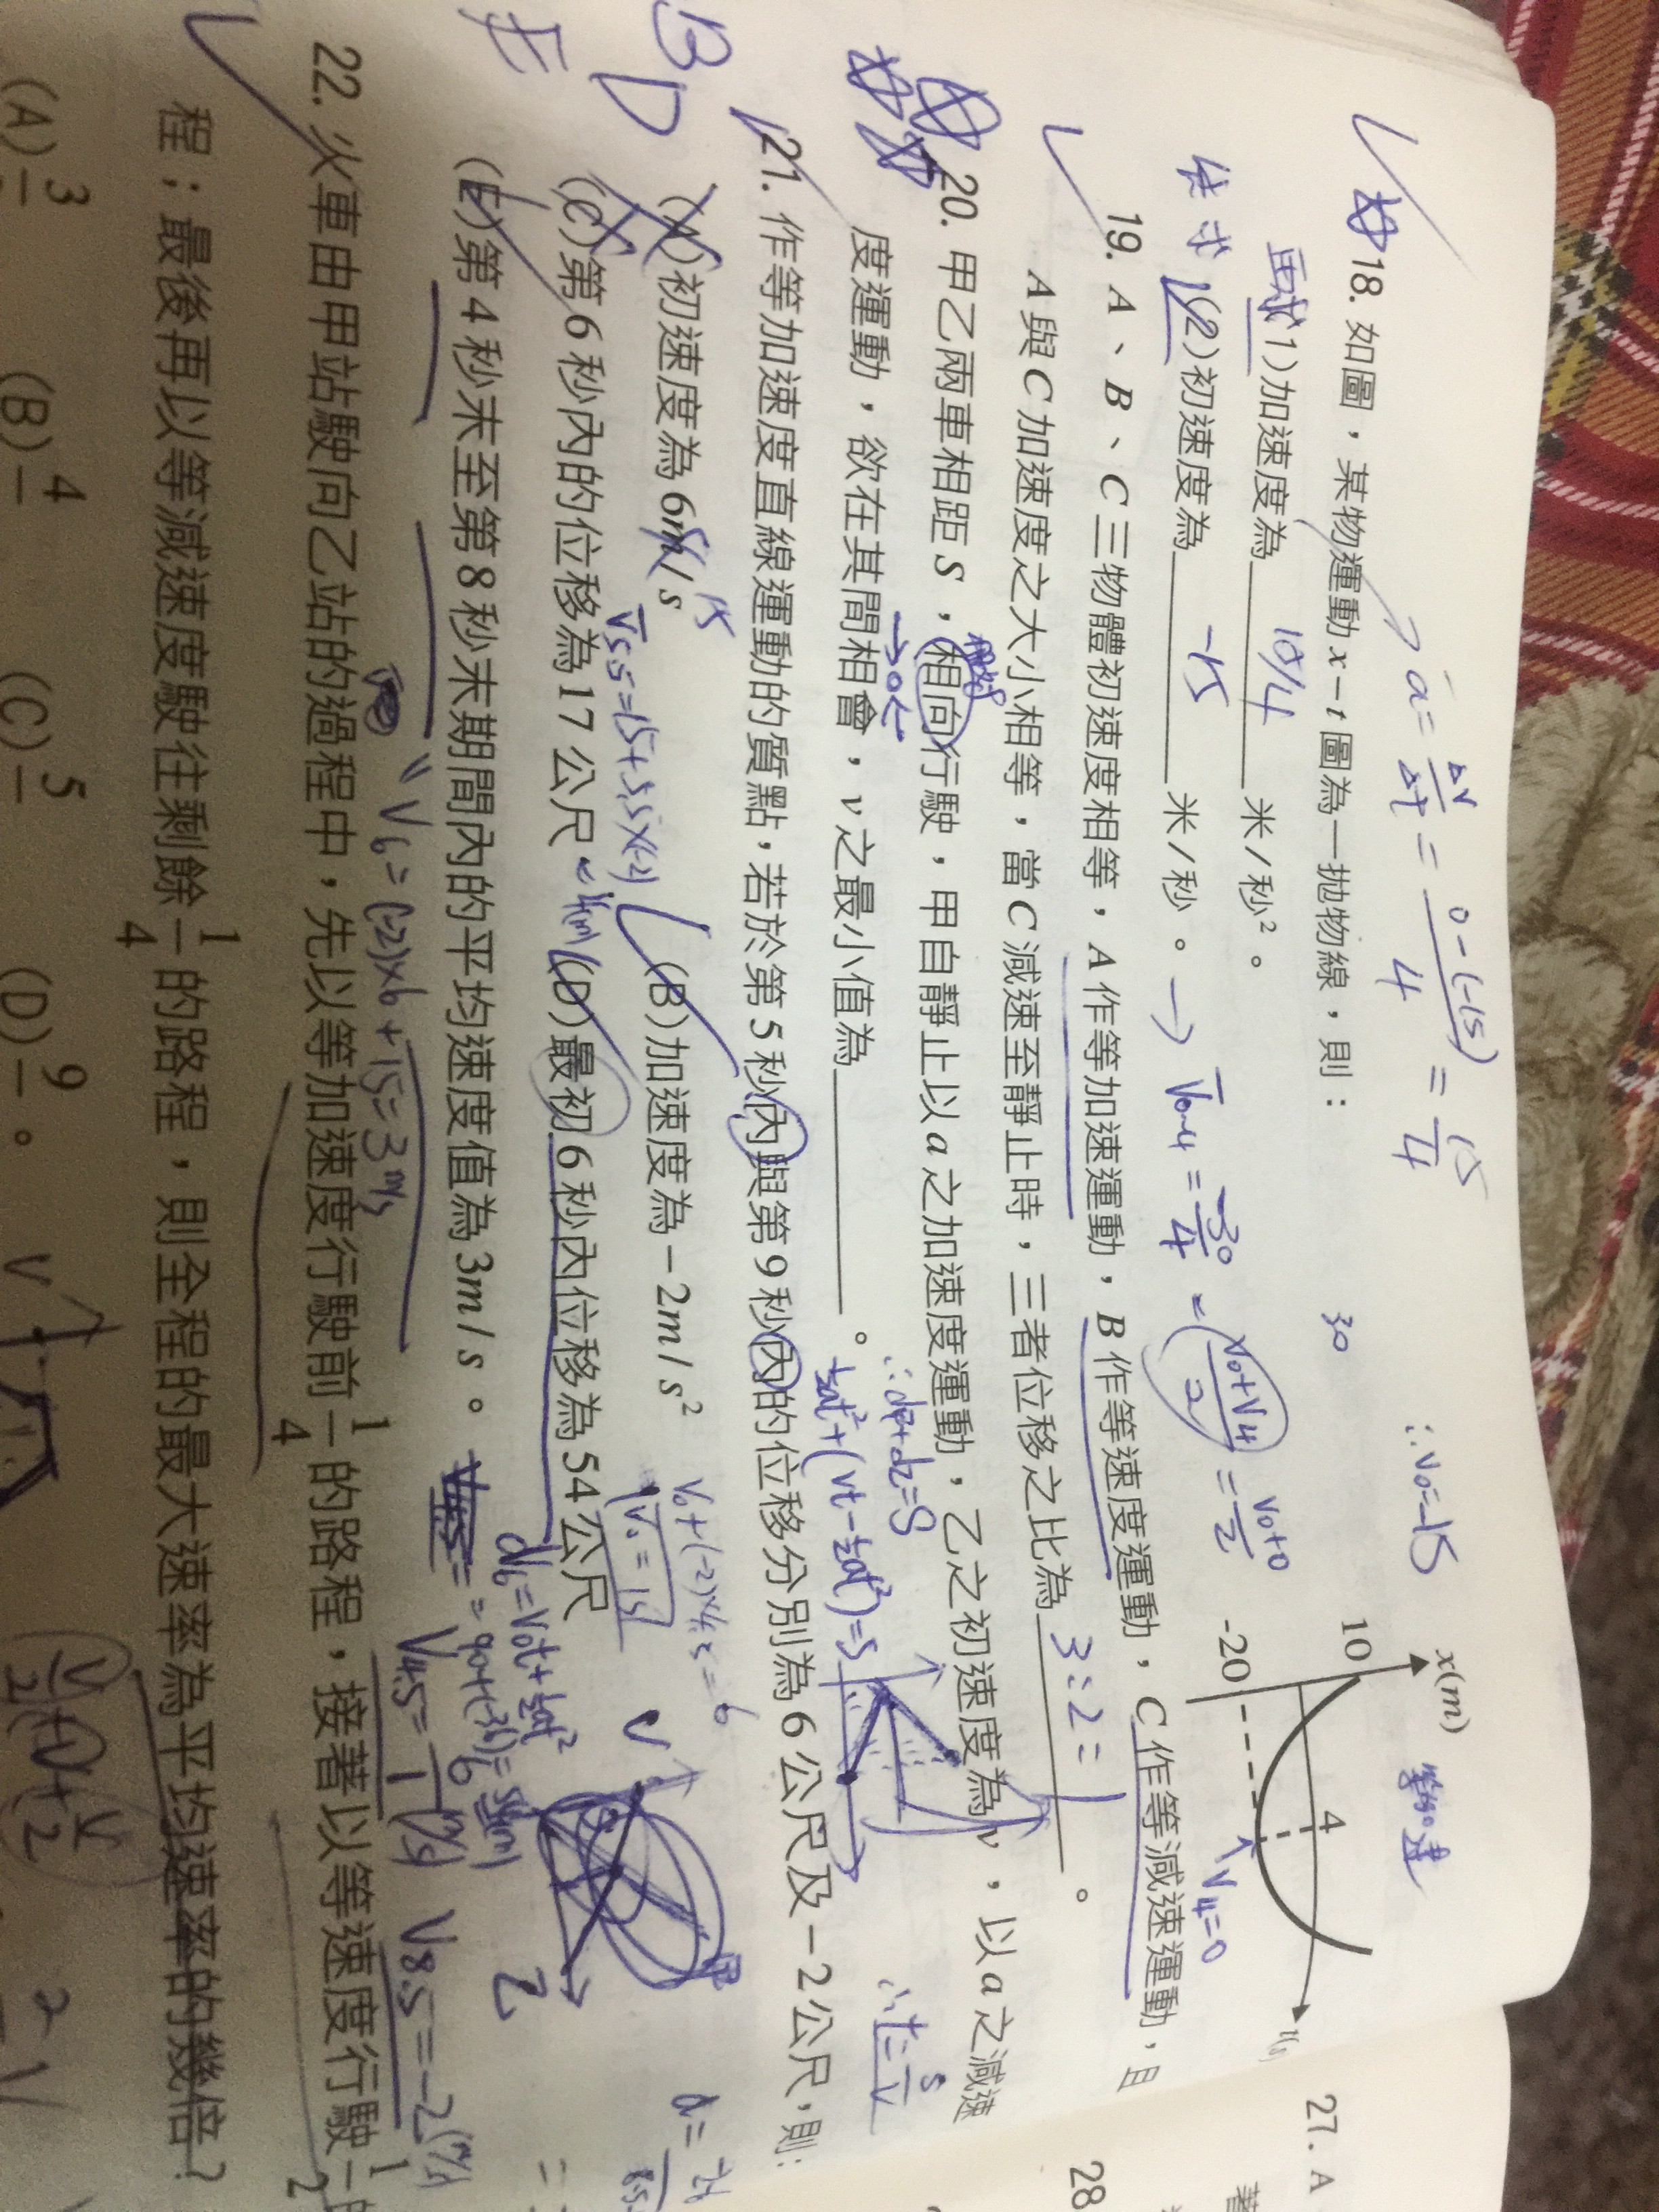 a = Δv/Δt = 0-(-15)/4 = 15/4
∴V₀=-15
18. 如圖，某物運動 x－t 圖為一拋物線，則：
30
(1)加速度為 15/4 米/秒²。
(2)初速度為 -15 米/秒。→ V̄₀₋₄ = -30/4 = (V₀+V₄/2) = V₀+0/2
x(m)
10
4
-20
t(s)
V₄=0
19. A、B、C 三物體初速度相等，A 作等加速運動，B 作等速度運動，C 作等減速運動，且
A 與 C 加速度之大小相等，當 C 減速至靜止時，三者位移之比為 3:2=1 。
20. 甲乙兩車相距 S，相向行駛，甲自靜止以 a 之加速度運動，乙之初速度為 v，以 a 之減速
度運動，欲在其間相會，v 之最小值為 。
∴d甲+d乙=S
½at²+(Vt-½at²)=S
∴t=S/V
21. 作等加速度直線運動的質點，若於第 5 秒內與第 9 秒內的位移分別為 6 公尺及－2 公尺，則：
(A)初速度為 6m/s 15 (B)加速度為－2m/s²
V₀+(-2)×4.5=6
V₀=15
V̄5.5=15+5.5×(-2)
(C)第 6 秒內的位移為 17 公尺 (D)最初 6 秒內位移為 54 公尺
d₆=V₀t+½at²
=90+(-36)=54(m)
(E)第 4 秒末至第 8 秒末期間內的平均速度值為 3m/s。
V₆=(-2)×6+15=3m/s
V4.5=6/1(m/s) V8.5=-2(m/s)
B D
E
22. 火車由甲站駛向乙站的過程中，先以等加速度行駛前 1/4 的路程，接著以等速度行駛 1/2 的
程；最後再以等減速度駛往剩餘 1/4 的路程，則全程的最大速率為平均速率的幾倍？
(A) 3/ (B) 4/ (C) 5/ (D) 9/ 。
V
27. A
著
28.